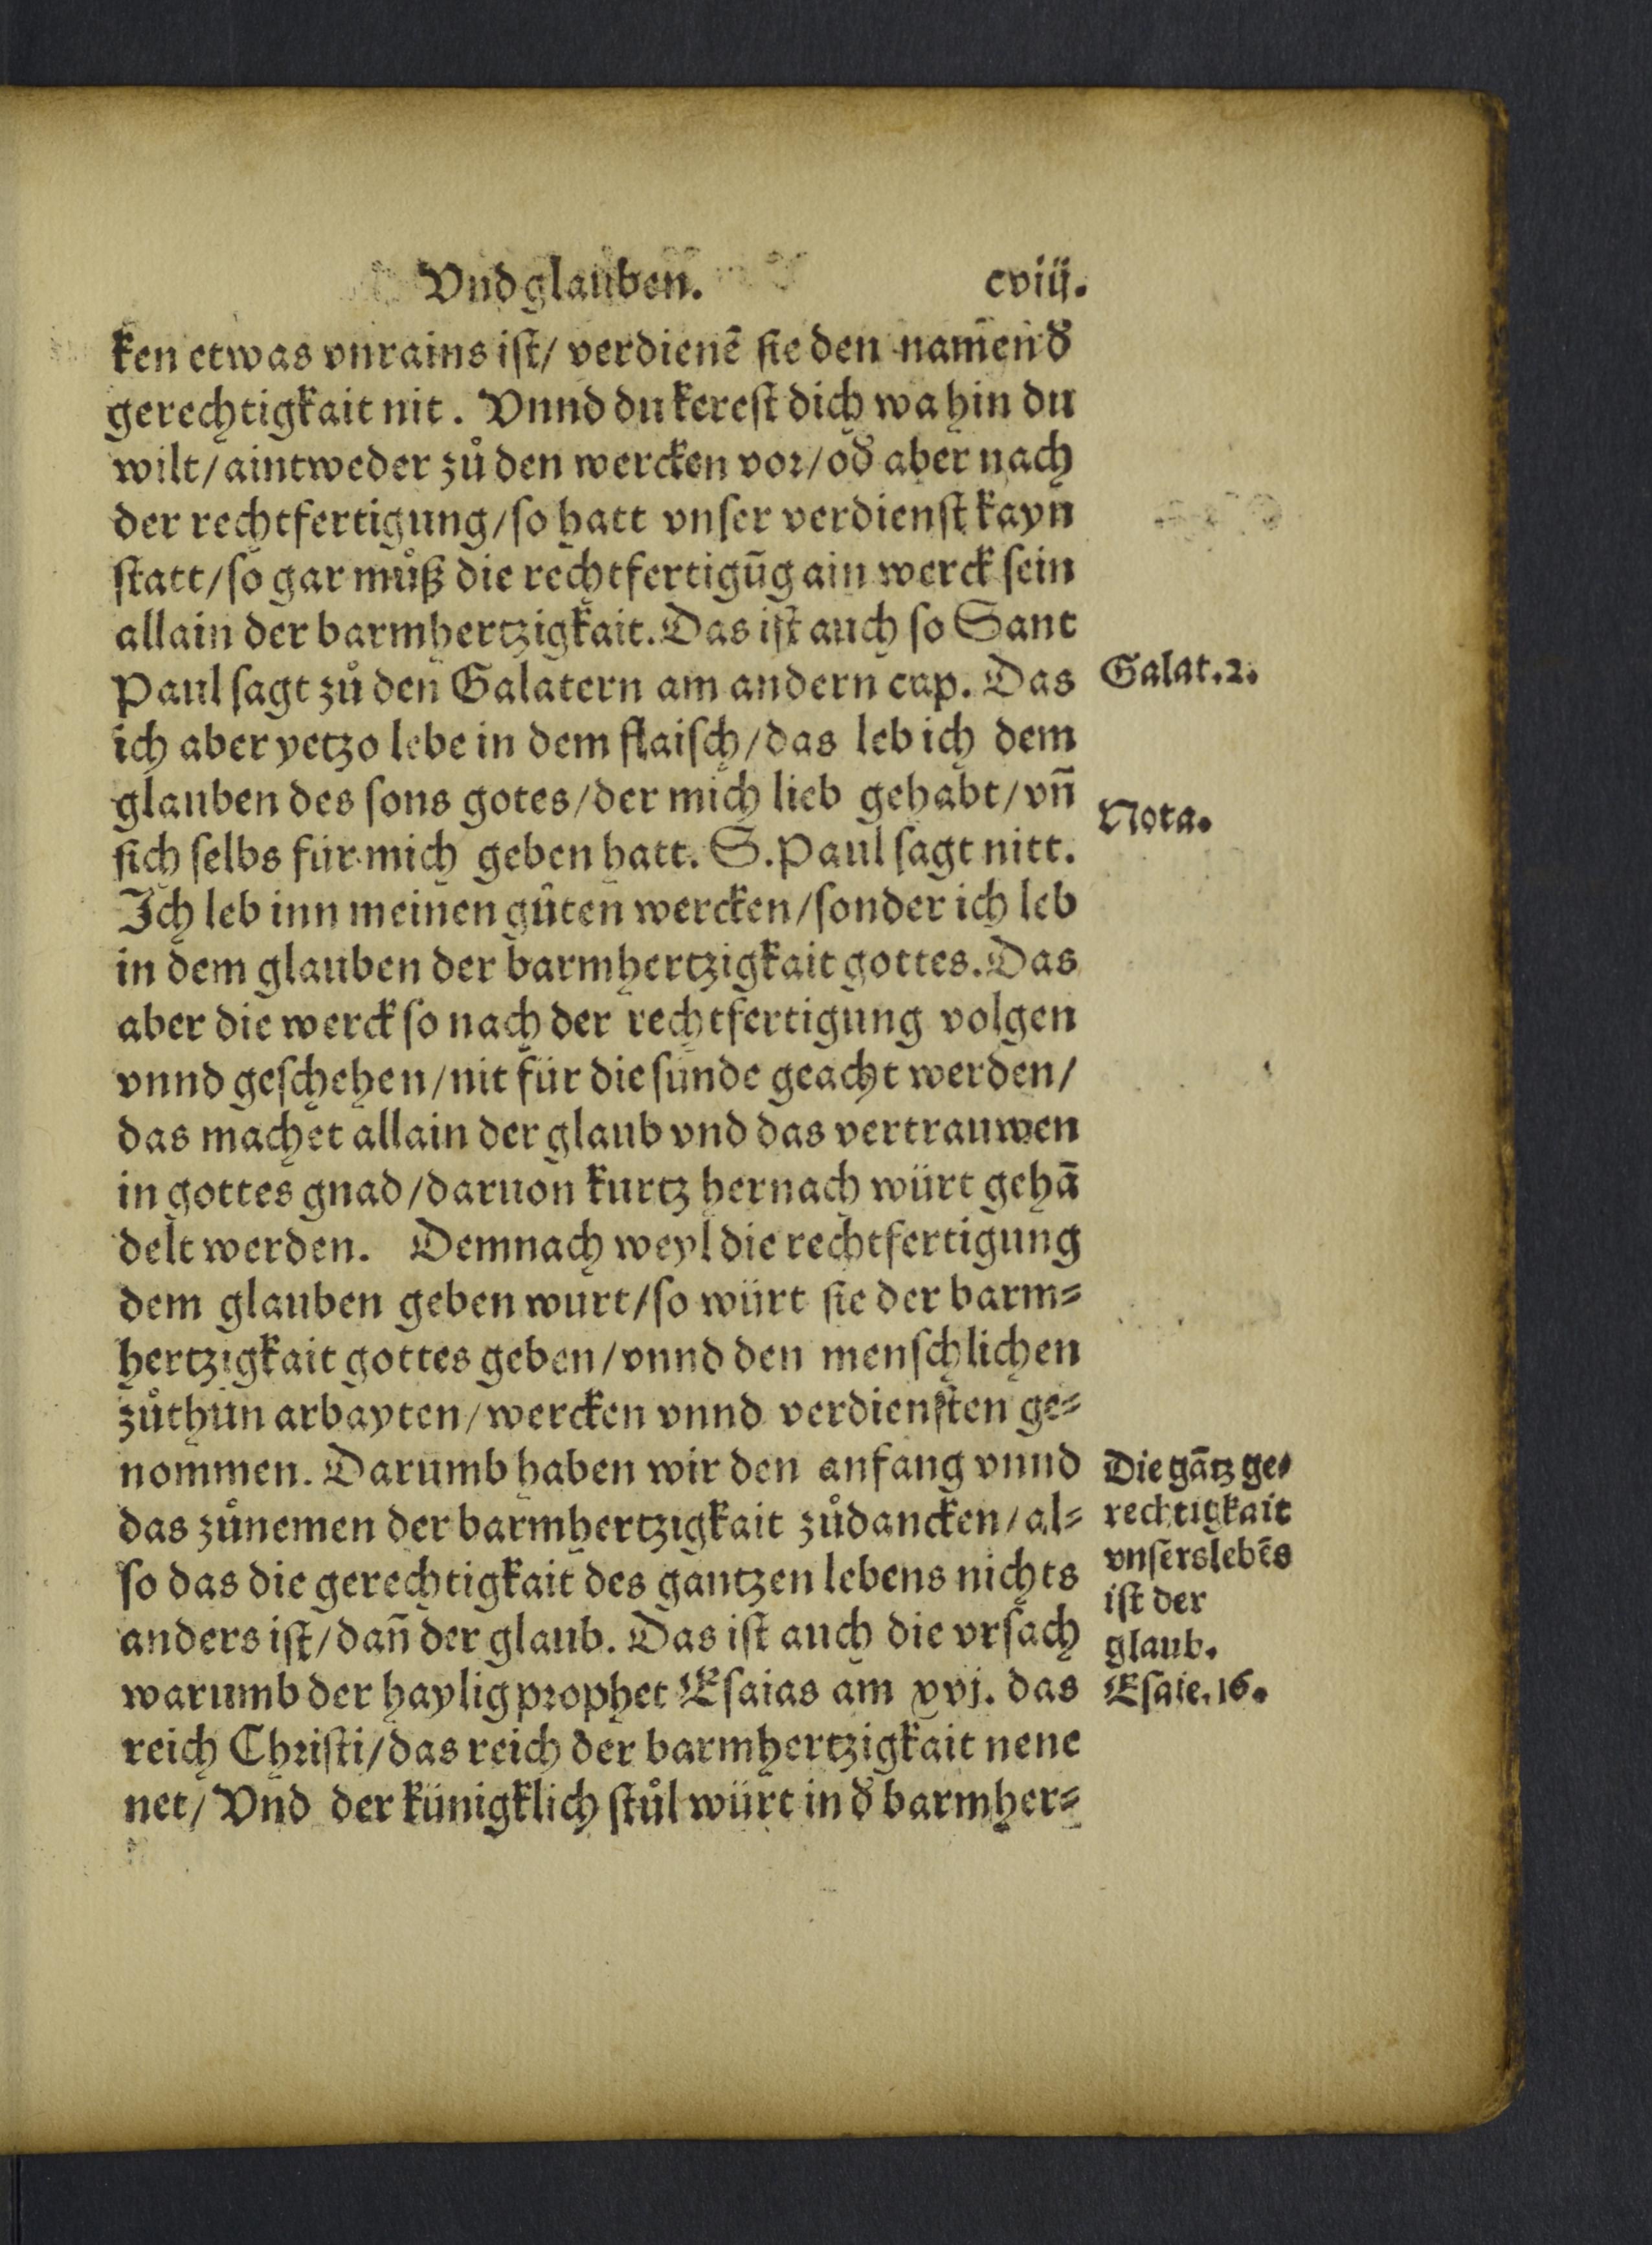 Vnd glauben. cviij.
ken etwas vnrains iſt/ verdienē ſie den namen̄ d̕
gerechtigkait nit. Vnnd du kereſt dich wa hin du
wilt/aintweder zů den wercken vor/od̕ aber nach
der rechtfertigung/ſo hatt vnſer verdienſt kayn
ſtatt/ſo gar můß die rechtfertigūg ain werck ſein
allain der barmhertzigkait. Das iſt auch ſo Sant
Paul ſagt zů den Galatern am andern cap. Das
Galat.2.
ich aber yetzo lebe in dem flaiſch/das leb ich dem
glauben des ſons gotes/der mich lieb gehabt/vn̄
Nota.
ſich ſelbs für mich geben hatt. S. Paul ſagt nitt.
Ich leb inn meinen gůten wercken/ſonder ich leb
in dem glauben der barmhertzigkait gottes. Das
aber die werck ſo nach der rechtfertigung volgen
vnnd geſchehen/nit für die ſünde geacht werden/
das machet allain der glaub vnd das vertrauwen
in gottes gnad/daruon kurtz hernach würt gehā
delt werden. Demnach weyl die rechtfertigung
dem glauben geben wurt/ſo würt ſie der barm⸗
hertzigkait gottes geben/vnnd den menſchlichen
zůthůn arbayten/wercken vnnd verdienſten ge⸗
nommen. Darumb haben wir den anfang vnnd
das zůnemen der barmhertzigkait zůdancken/al⸗
ſo das die gerechtigkait des gantzen lebens nichts
anders iſt/dan̄ der glaub. Das iſt auch die vrſach
warumb der haylig prophet Eſaias am xvj. das
Die gātz ge⸗
rechtigkait
vnſers lebēs
iſt der
glaub.
Eſaie.16.
reich Chriſti/das reich der barmhertzigkait nene
net/ Vnd der künigklich ſtůl würt in d̕ barmher⸗